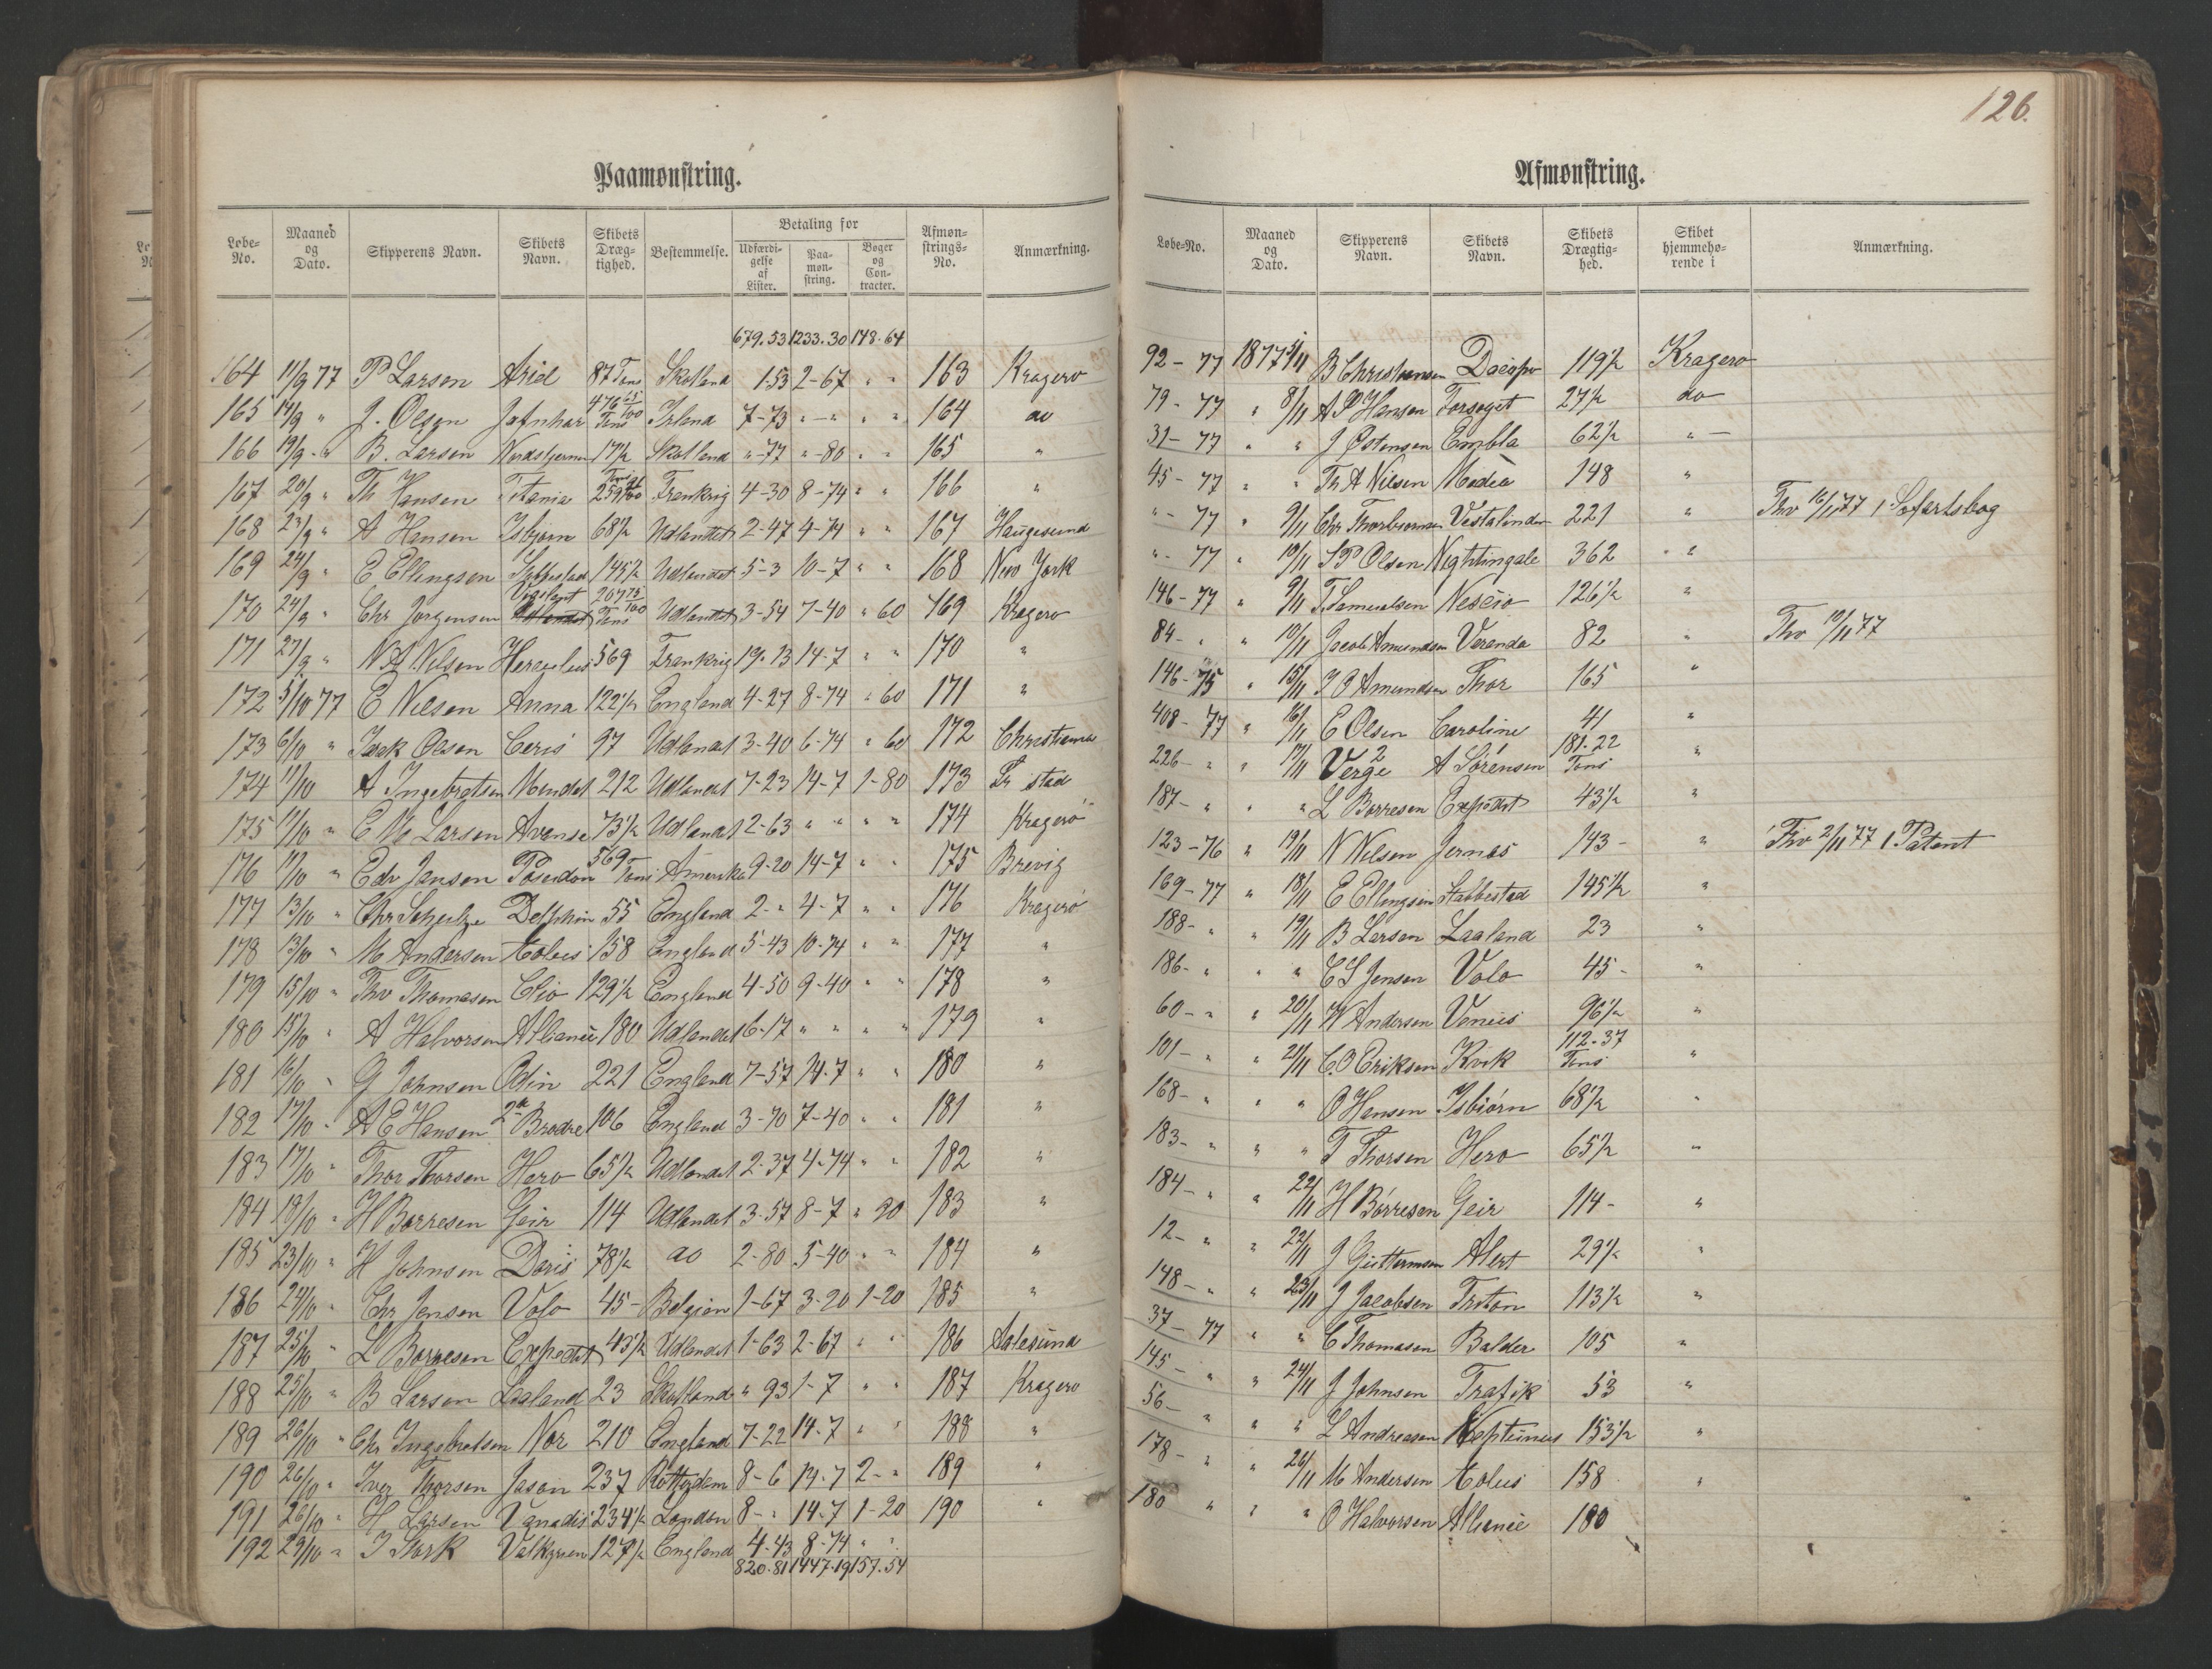 126.
Paamønstring.
Løbe-No. | Maaned og Dato. | Skipperens Navn. | Skibets Navn. | Skibets Dræg-tighed. | Bestemmelse. | Betaling for | Udfærdi-gelse af Lister. | Paa-møn-string. | Bøger og Con-tracter. | Afmøn-strings-No. | Anmærkning.
679.53 1233.30 148.64
164 11/9 77 P Larsen Ariel 87 Tons Skotland 1.53 2-67 " " 163 Kragerø
165 14/9 " J. Olsen Jafnhar 476 65/100 Tons Irland 7-73 " - " " " 164 do
166 19/9 - " B. Larsen Nordstjernen 17½ Skotland "-77 "-80 " " 165 "
167 20/9 " Th Hansen Titania 259 Tons Frankrig 4-30 8-74 " " 166 "
168 23/9 " A Hansen Isbjørn 68½ Udlandet 2-47 4-74 " " 167 Haugesund
169 24/9 " E Ellingsen Stabbestad 145½ Udlandet 5-3 10-7 " " 168 New York
170 24/9 " Chr Jørgensen Vigilant 207 75/100 Tons Udlandet 3-54 7-40 " 60 169 Kragerø
171 27/9 " N A Nilsen Herculus 569 Frankrig 19.13 14-7 " " 170 "
172 5/10 77 E Nilsen Anna 122½ England 4-27 8-74 " 60 171 "
173 6/10 " Isak Olsen Ceris 97 Udlandet 3-40 6-74 " 60 172 Christiania
174 11/10 A Ingebretsen Mendal 212 Udlandet 7-23 14-7 1-80 173 Fr stad
175 11/10 " E M Larsen Avanse 73½ Udlandet 2-63 " " " " 174 Kragerø
176 11/10 " Edv Jansen Poseidon 569 Tons Amerika 9-20 14-7 " " 175 Brevig
177 13/10 " Chr Schultze Delphin 55 England 2-" 4-7 " " 176 Kragerø
178 13/10 " M Andersen Æolus 158 England 5-43 10-74 " " 177 "
179 15/10 " Thv Thomesen Clio 129½ England 4-50 9-40 " " 178 "
180 15/10 " A Halvorsen Alliance 180 Udlandet 6-17 " " " " 179 "
181 16/10 " G Johnsen Odin 221 England 7-57 14-7 " " 180 "
182 17/10 " A E Hansen 2de Brødre 106 England 3-70 7-40 " " 181 "
183 17/10 " Thor Thorsen Hero 65½ Udlandet 2-37 4-74 " " 182 "
184 19/10 " H Børresen Geir 114 Udlandet 3-57 8-7 " 90 183 "
185 23/10 " H Johnsen Doris 78½ do 2-80 5-40 " " 184 "
186 24/10 " Chr Jensen Volo 45 - Belgien 1-67 3-20 1-20 185 "
187 25/10 " L Børresen Expedit 43½ Udlandet 1-63 2-67 " " 186 Aalesund
188 25/10 " B Larsen Laaland 23 Skotland " 93 1-7 " " 187 Kragerø
189 26/10 " Chr Ingebretsen Nor 210 England 7-22 14-7 " " 188 "
190 26/10 " Iver Thorsen Jason 237 Rotterdam 8-6 14-7 2-" 189 "
191 26/10 " H Larsen Vanadis 234½ London 8-" 14-7 1-20 190 "
192 29/10 " J Stork Valkyrien 127½ England 4-43 8-74 " "
820.81 1447.19 157.54
Afmønstring.
Løbe-No. | Maaned og Dato. | Skipperens Navn. | Skibets Navn. | Skibets Drægtig-hed. | Skibet hjemmehø-rende i | Anmærkning.
92 - 77 1877 5/11 B Christensen 119½ Kragerø
79 - 77 " 8/11 A P Hansen Forsøget 27½ do
31 - 77 " " J Østensen Embla 62½ " -
45 - 77 " " Th A Nilsen Medea 148 "
" - 77 " 9/11 Chr Thorbiørnsen Vestalinden 221 " Thv 16/11 77 i Søfartsbog
" - 77 " 10/11 S P Olsen Nightingale 362 "
146 - 77 " 9/11 T Samuelsen Nescio 126½ "
84 - " " 10/11 Jacob Amundsen Veranda 82 " Thv 10/11 77
146 - 75 " 15/11 J O Amundsen Thor 165 "
408 - 77 " 16/11 E Olsen Caroline 41 "
226 - " " 17/11 Verge 2 A Sørensen 181.22 Tons "
187 - " " " L Børresen Expedit 43½ "
123 - 76 " 19/11 N Nilsen Jernæs 143 - " Thv 2/11 77 i Patent
169 - 77 " 18/11 E Ellingsen Stabbestad 145½ "
188 - " " 19/11 B Larsen Laaland 23 "
186 - " " " C S Jensen Volo 45 - "
60 - " " 20/11 W Andersen Venus 96½ "
101 - " " 21/11 C. O Eriksen Kvik 112-37 Tons "
168 - " " " O Hansen Isbiørn 68½ "
183 - " " " T Thorsen Hero 65½ "
184 - " " 22/11 H Børresen Geir 114 - "
12 - " " 22/11 J Guttormsen Alert 29½ "
148 - " " 23/11 J Jacobsen Triton 113½ "
37 - 77 " " C Thomasen Balder 105 "
145 - " " 24/11 J Johnsen Trafik 53 "
56 - " " " L Andreasen Neptunus 153½ "
178 - " " 26/11 M Andersen Æolus 158 "
180 " " " O Halvorsen Alliance 180